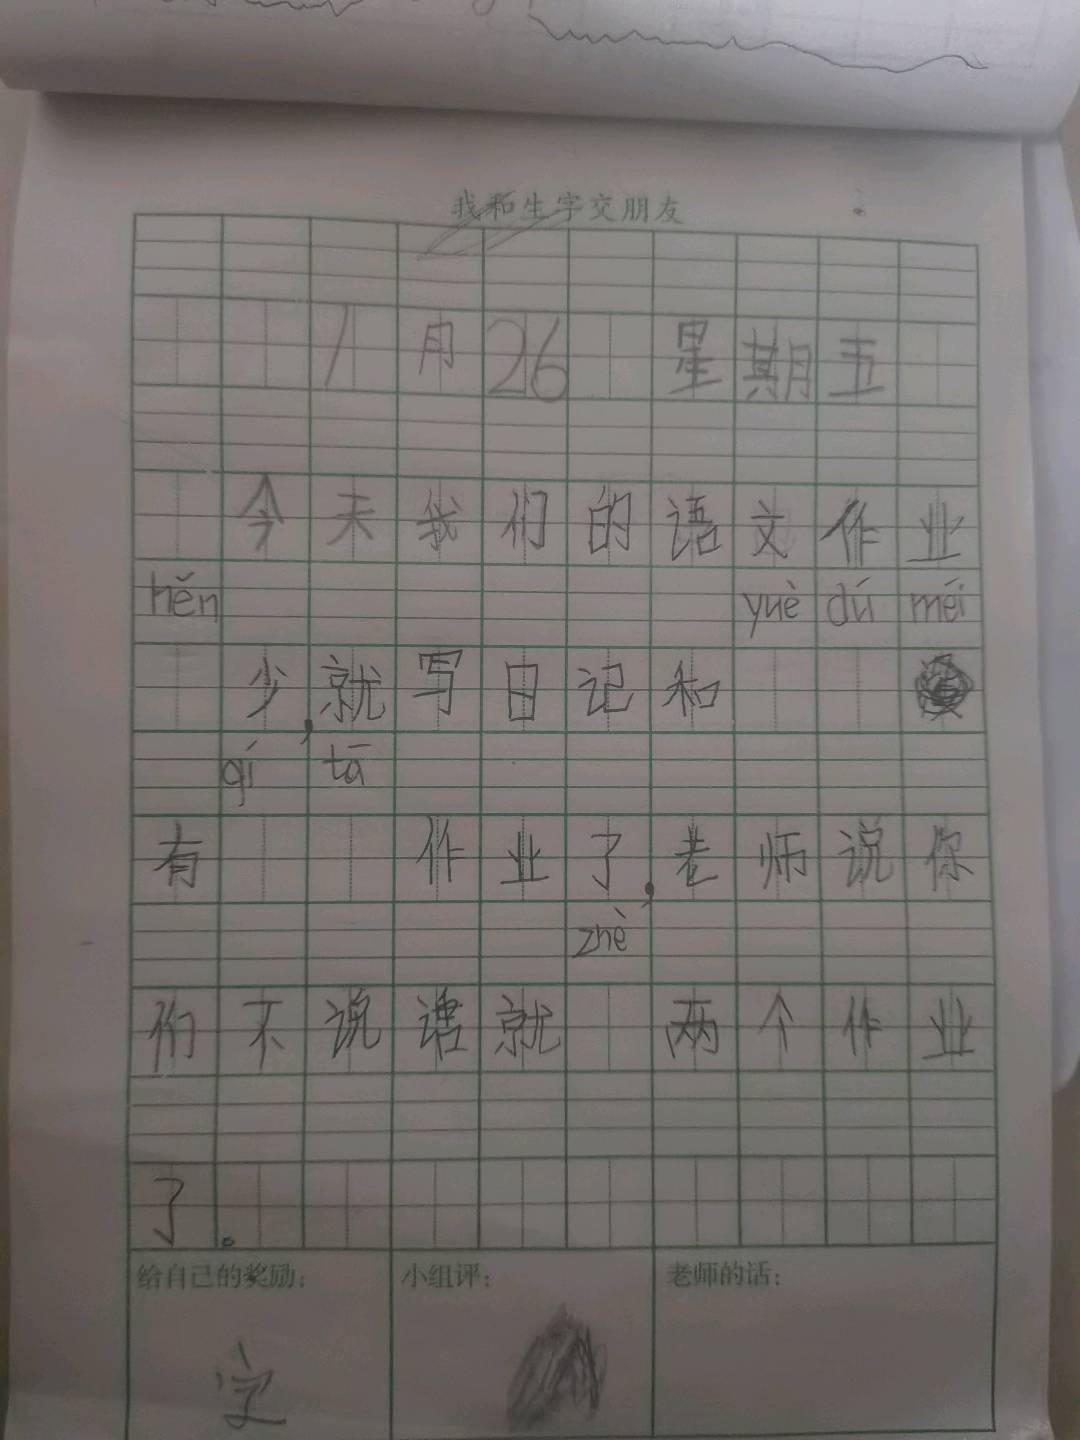 我和生字交朋友
1月26 星期五
今天我们的语文作业
hěn yuè dú méi
少,就写日记和
qí tā
有 作业了,老师说你
zhè
们不说话就 两个作业
了。
给自己的奖励: 小组评: 老师的话: